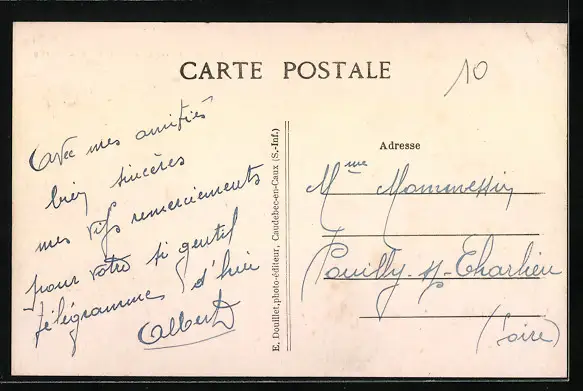 CARTE POSTALE
10
Avec mes amitiés
bien sincères
mes vifs remerciements
pour votre si gentil
télégramme d'hier
Albert
E. Douillet, photo-éditeur, Caudebec-en-Caux (S.-Inf.)
Adresse
Mme
Pouilly-s/-Charlieu
(Loire)